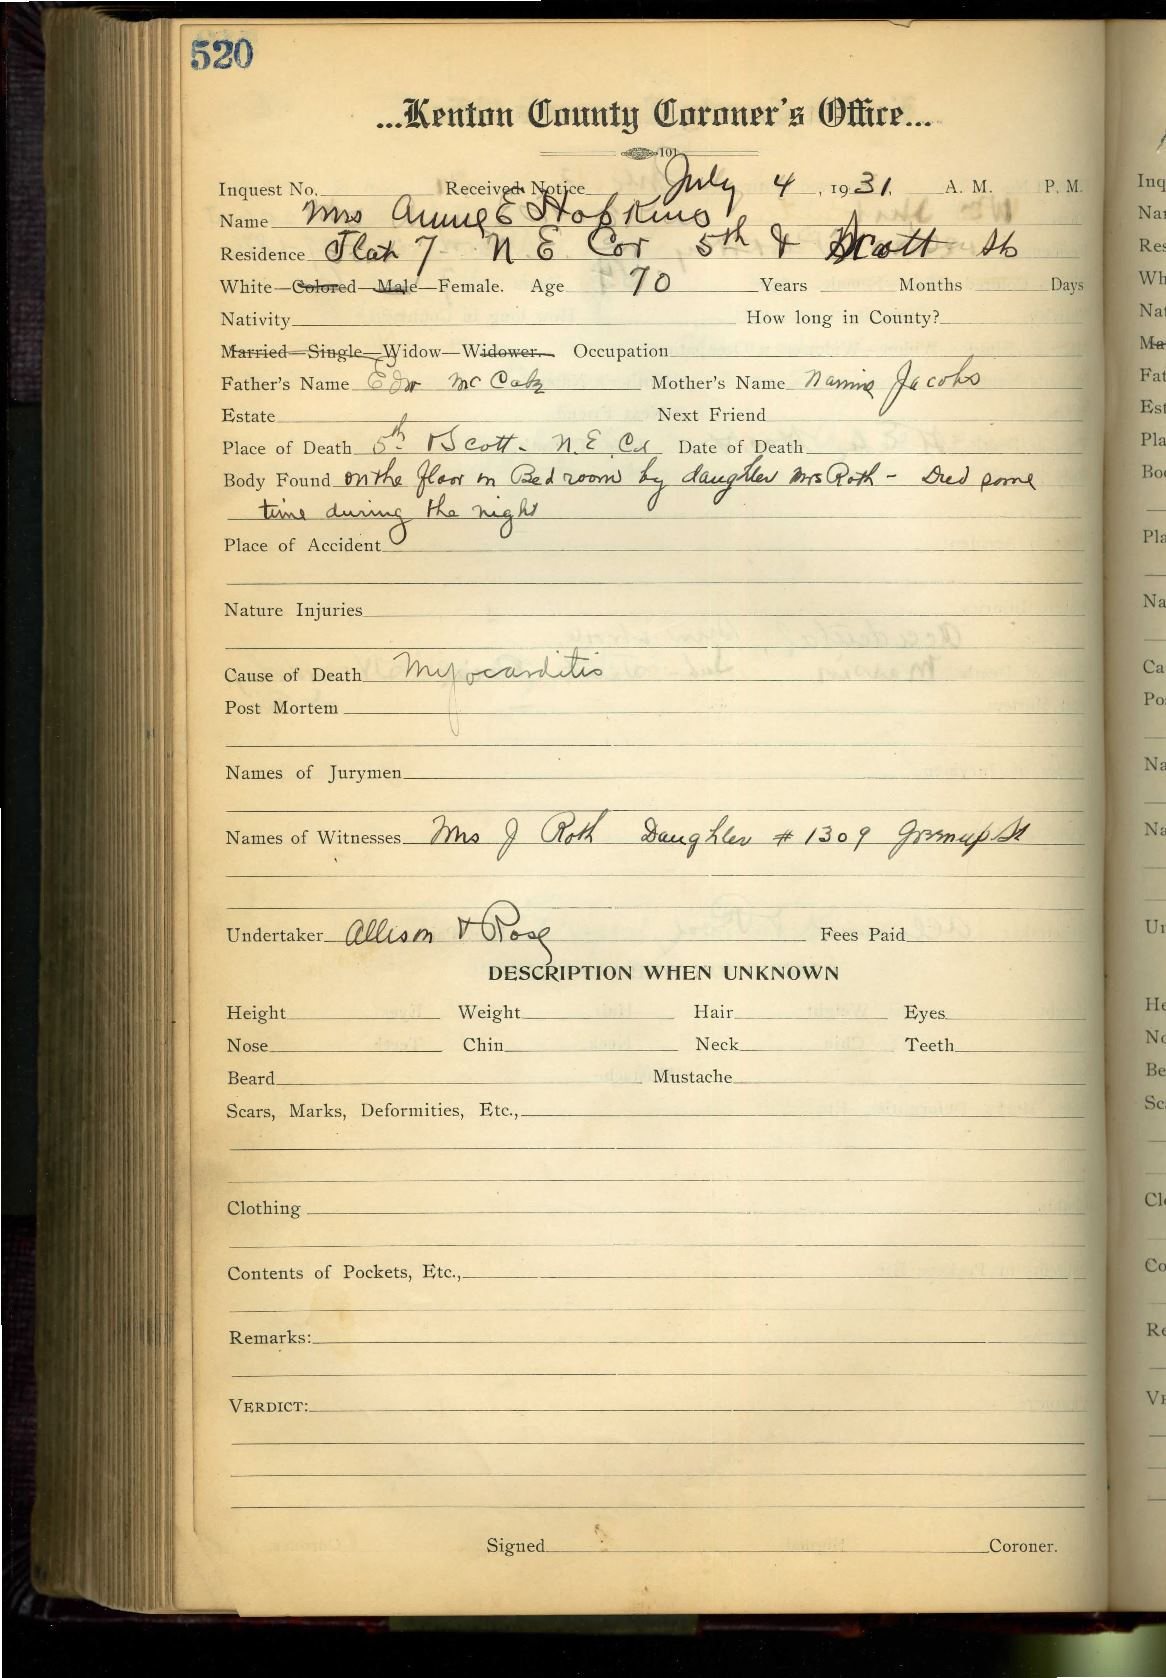 520
...Kenton County Coroner's Office...
101
Inquest No. Received Notice July 4, 1931. A. M. P. M.
Name Mrs Annie E Hopkins
Residence Flat 7 N E Cor 5th & Scott Sts
White—Colored—Male—Female. Age 70 Years Months Days
Nativity How long in County?
Married—Single—Widow—Widower. Occupation
Father's Name Edw McCabe Mother's Name Nannie Jacobs
Estate Next Friend
Place of Death 5th & Scott - N. E. Co Date of Death
Body Found on the floor in Bed room by daughter Mrs Roth - Died some
time during the night
Place of Accident
Nature Injuries
Cause of Death Myocarditis
Post Mortem
Names of Jurymen
Names of Witnesses Mrs J Roth Daughter # 1309 Greenup St
Undertaker Allison & Rose Fees Paid
DESCRIPTION WHEN UNKNOWN
Height Weight Hair Eyes
Nose Chin Neck Teeth
Beard Mustache
Scars, Marks, Deformities, Etc.,
Clothing
Contents of Pockets, Etc.,
Remarks:
VERDICT:
Signed Coroner.